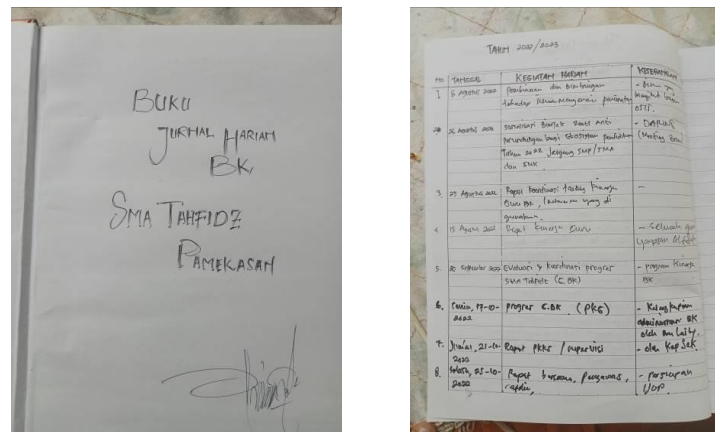 BUKU
JURNAL HARIAN
BK
SMA TAHFIDZ
PAMEKASAN
TAHUN 2022/2023
NO TANGGAL KEGIATAN HARIAN KETERANGAN
1. 5 Agustus 2022 Pembinaan dan Bimbingan
terhadap siswa mengenai
OSIS.
26 Agustus 2022 Sosialisasi Bimtek Roots Anti - DARING
perundungan bagi Ekosistem pendidikan (Meeting Zoom)
Tahun 2022 Jenjang SMP/SMA
dan SMK
3. 29 Agustus 2022 Rapat Koordinasi tentang Kinerja -
Guru BK, instrumen yang di
gunakan.
4. Agustus 2022 Rapat Kinerja Guru - Seluruh guru
yayasan
5. 20 September 2022 Evaluasi & Koordinasi program - program Kinerja
SMA Tahfidz (C. BK) BK
6. Senin, 17-10-2022 program C.BK (PKG) - Kelengkapan
administrasi BK
oleh
7. Jum'at, 21-10-2022 Rapat PKKS / supervisi - oleh KapSek
8. Selasa, 25-10-2022 Rapat bersama, pengawas, - persiapan